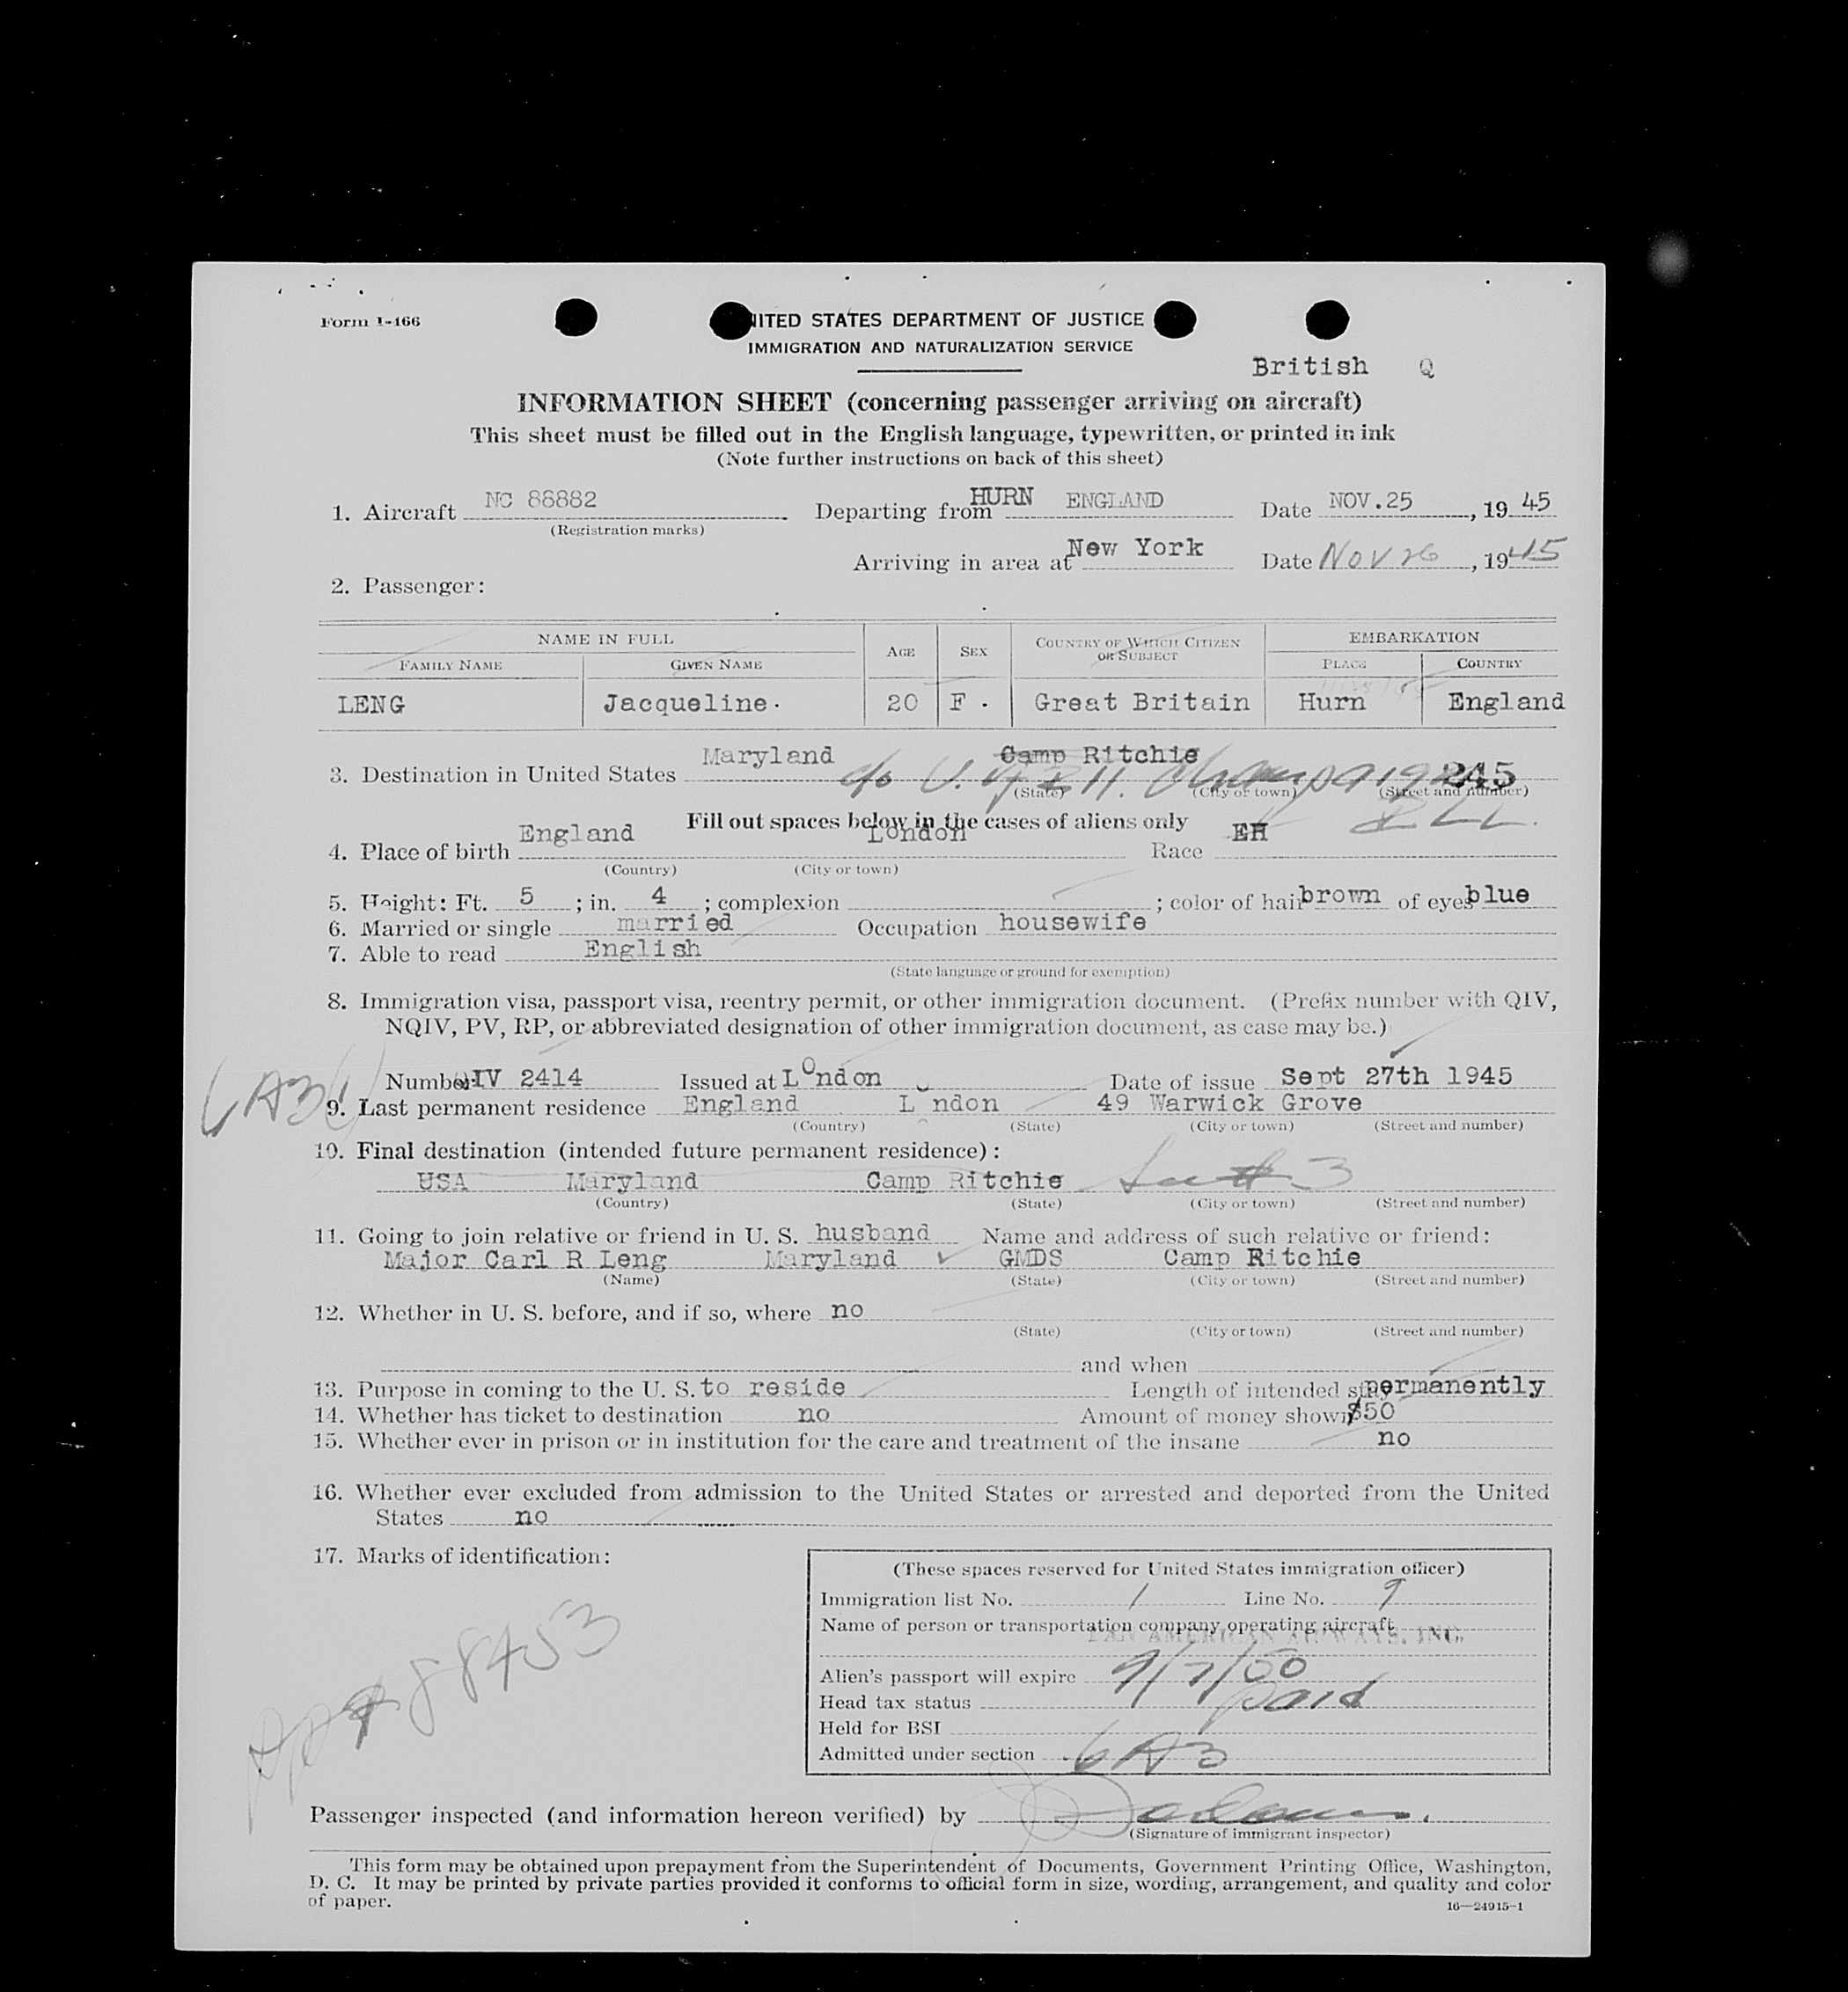 Form I-466
UNITED STATES DEPARTMENT OF JUSTICE
IMMIGRATION AND NATURALIZATION SERVICE
British Q
INFORMATION SHEET (concerning passenger arriving on aircraft)
This sheet must be filled out in the English language, typewritten, or printed in ink
(Note further instructions on back of this sheet)
1. Aircraft NC 88882 Departing from HURN ENGLAND Date NOV.25, 19 45
(Registration marks)
Arriving in area at New York Date NOV 26, 1945
2. Passenger:
NAME IN FULL AGE SEX COUNTRY OF WHICH CITIZEN OR SUBJECT EMBARKATION
FAMILY NAME GIVEN NAME PLACE COUNTRY
LENG Jacqueline. 20 F. Great Britain Hurn England
3. Destination in United States Maryland Camp Ritchie
c/o U. of Ill. 245
(State) (City or town) (Street and number)
Fill out spaces below in the cases of aliens only ILL.
4. Place of birth England London Race EH
(Country) (City or town)
5. Height: Ft. 5; in. 4; complexion ; color of hair brown of eyes blue
6. Married or single married Occupation housewife
7. Able to read English
(State language or ground for exemption)
8. Immigration visa, passport visa, reentry permit, or other immigration document. (Prefix number with QIV,
NQIV, PV, RP, or abbreviated designation of other immigration document, as case may be.)
Number QIV 2414 Issued at London Date of issue Sept 27th 1945
6A3
9. Last permanent residence England L ndon 49 Warwick Grove
(Country) (State) (City or town) (Street and number)
10. Final destination (intended future permanent residence):
USA Maryland Camp Ritchie See # 3
(Country) (State) (City or town) (Street and number)
11. Going to join relative or friend in U. S. husband Name and address of such relative or friend:
Major Carl R Leng Maryland GMDS Camp Ritchie
(Name) (State) (City or town) (Street and number)
12. Whether in U. S. before, and if so, where no
(State) (City or town) (Street and number)
and when
13. Purpose in coming to the U. S. to reside Length of intended stay permanently
14. Whether has ticket to destination no Amount of money shown $50
15. Whether ever in prison or in institution for the care and treatment of the insane no
16. Whether ever excluded from admission to the United States or arrested and deported from the United
States no
17. Marks of identification:
(These spaces reserved for United States immigration officer)
Immigration list No. 1 Line No. 9
Name of person or transportation company operating aircraft
PAN AMERICAN AIRWAYS, INC.
Alien's passport will expire 9/7/50
Head tax status Paid
Held for BSI
Admitted under section 6A3
Passenger inspected (and information hereon verified) by
(Signature of immigrant inspector)
This form may be obtained upon prepayment from the Superintendent of Documents, Government Printing Office, Washington,
D. C. It may be printed by private parties provided it conforms to official form in size, wording, arrangement, and quality and color
of paper.
16—24915-1